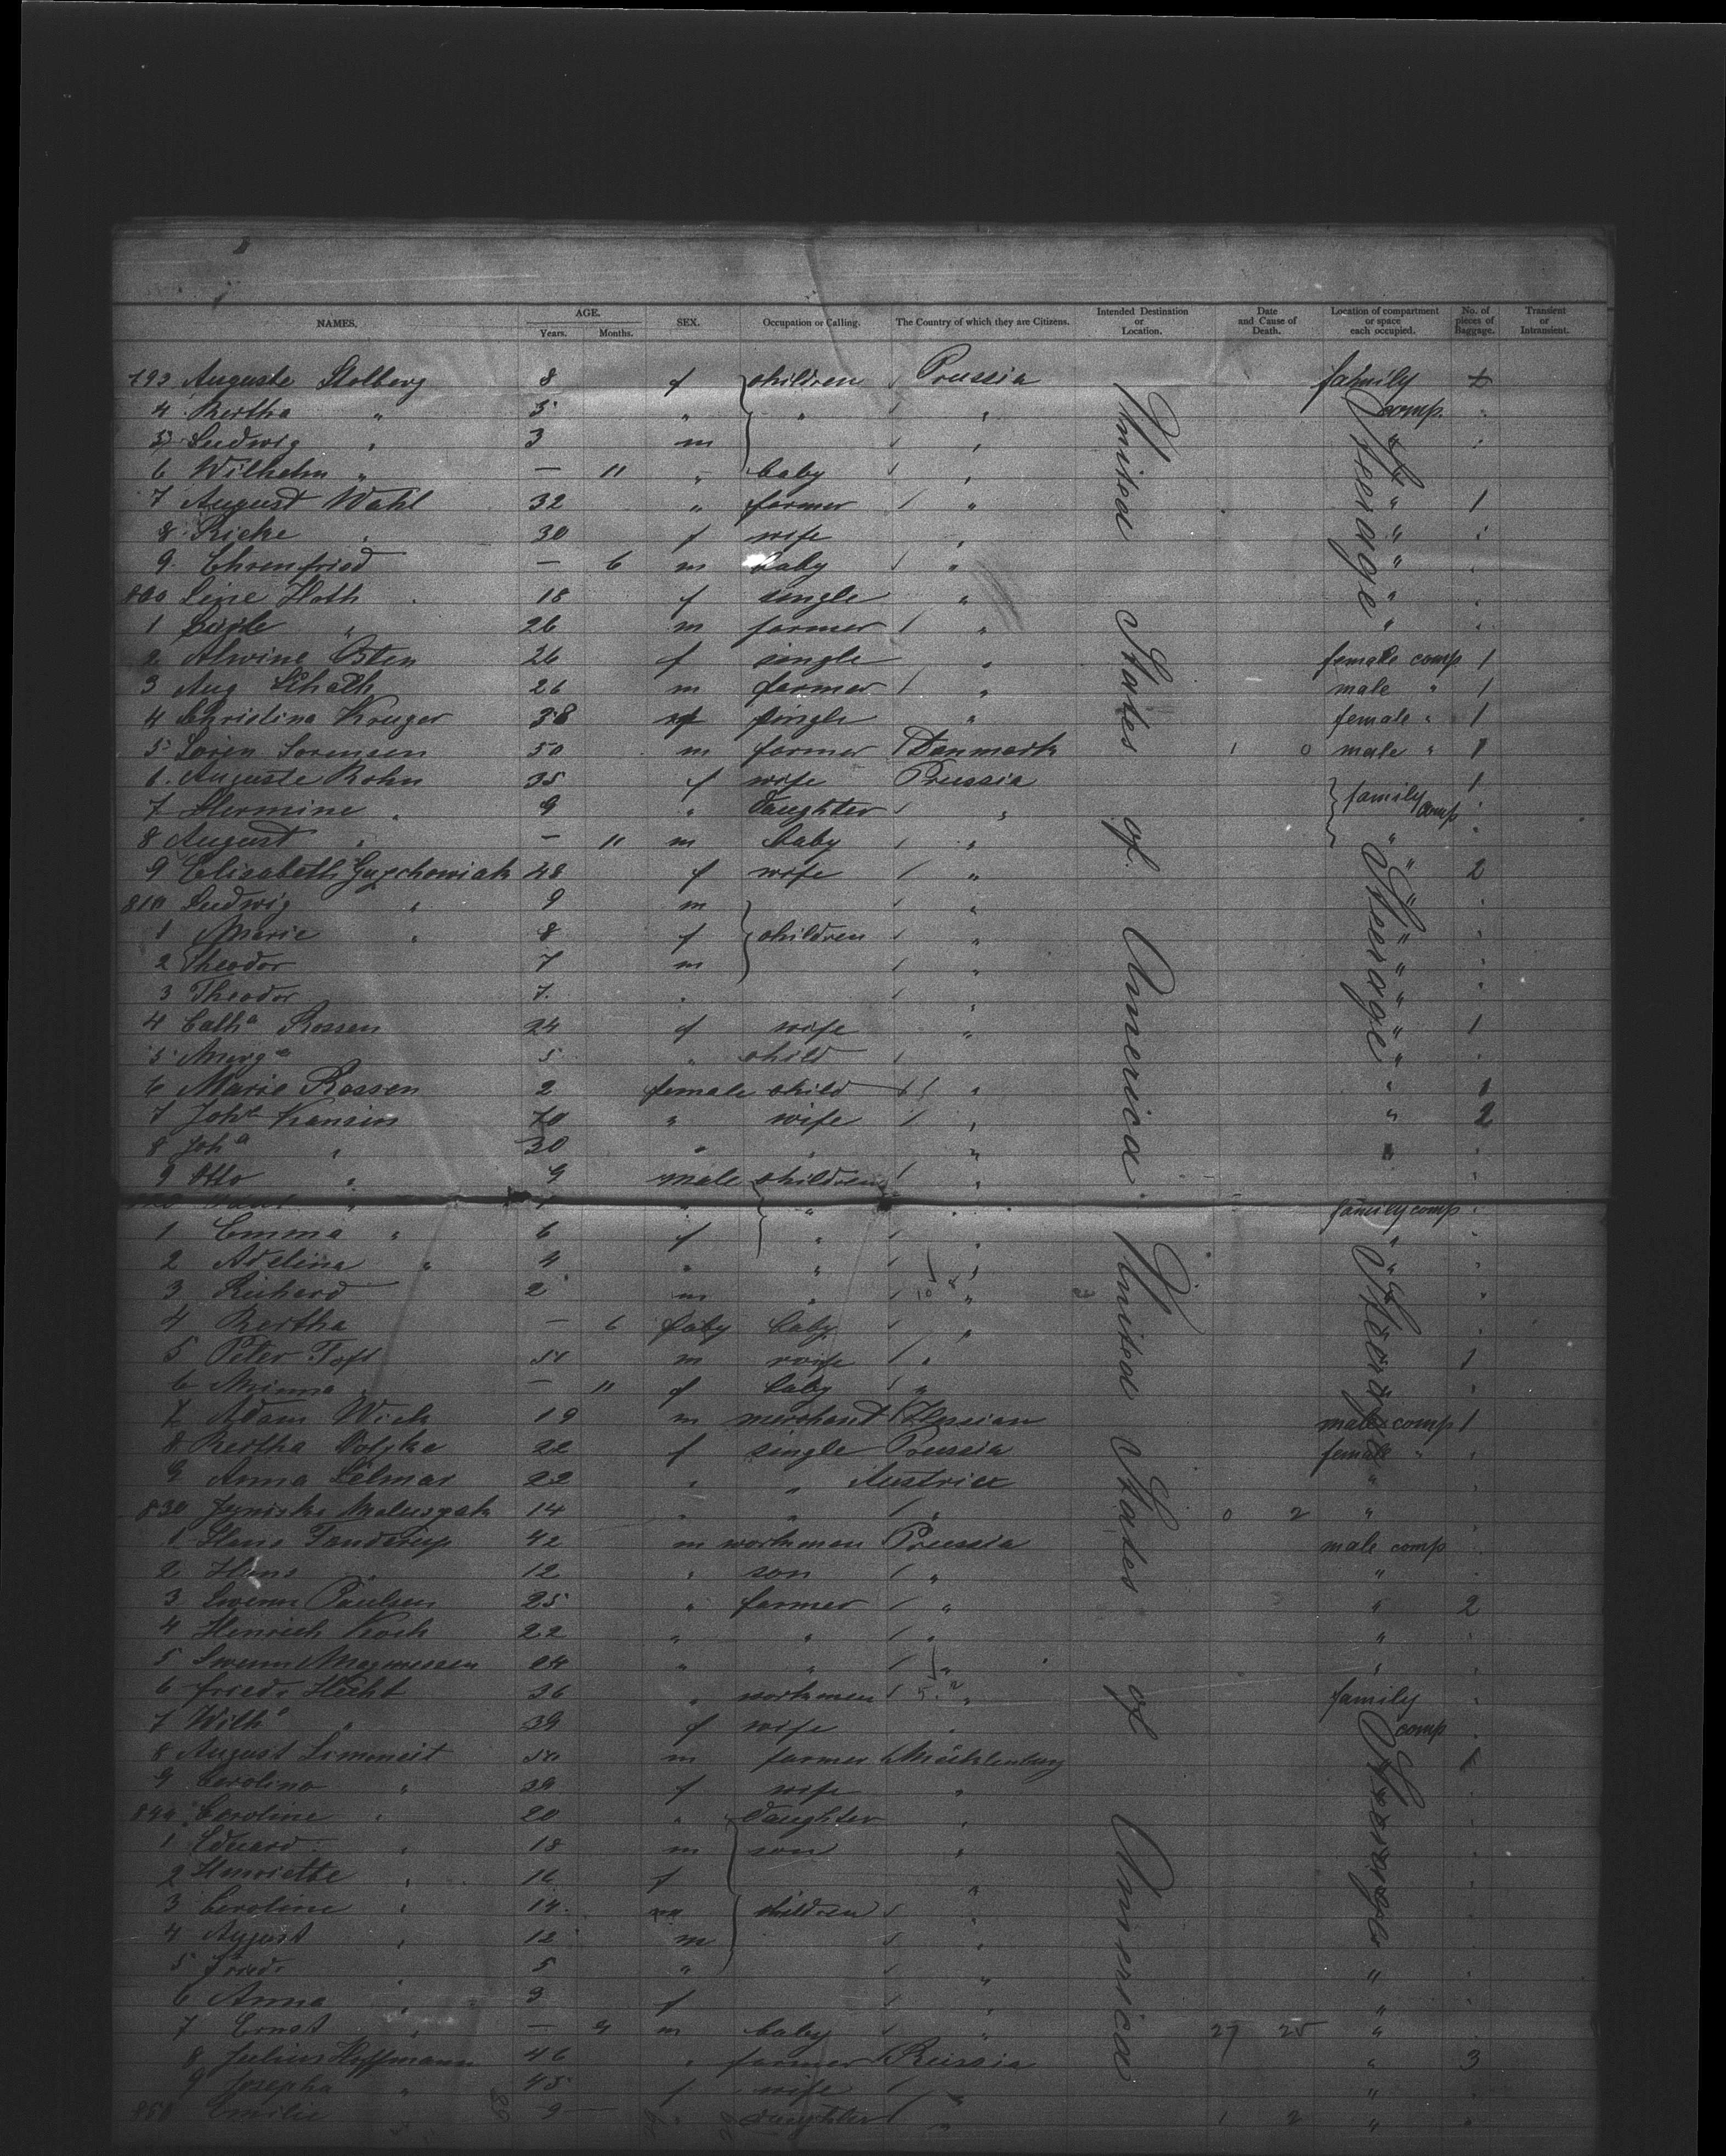 NAMES. AGE. Years. Months. SEX. Occupation or Calling. The Country of which they are Citizens. Intended Destination or Location. Date and Cause of Death. Location of compartment or space each occupied. No. of pieces of Baggage. Transient or Intransient.
793 Auguste Stolberg 8 f children Prussia family
4 Bertha " 5 " " " comp.
5 Ludwig " 3 m "
6 Wilhelm " — 11 " baby "
7 August Wahl 32 " farmer " " 1
8 Ricke " 30 f wife " "
9 Ehrenfried — 6 m baby " "
800 Line Hoth 18 f single " "
1 " 26 m farmer " "
2 Alwine Osten 26 f single " female comp 1
3 Aug 26 m farmer " male " 1
4 Christina Kruger 38 f single " female " 1
5 Soren Sorensen 50 m farmer Danmark 1 0 male " 1
6 Auguste Rohn 35 f wife Prussia 1
7 Hermine " 9 " daughter " family comp
8 August " — 11 m baby " "
9 Elisabeth Guzchowiak 48 f wife " " 2
810 Ludwig " 9 m " "
1 Marie " 8 f children " "
2 Theodor 7 m " "
3 Theodor 7 " " "
4 Cath.a Rossen 24 f wife " " 1
5 Marg.a 5 " child "
6 Marie Rossen 2 female child " " 1
7 Joh.a Kansin 70 " wife " " 2
8 Joh.a " 30 " " " "
9 Otto " 9 male children "
" " " family comp
1 Emma " 6 f " " "
2 Adelina " 4 " " " "
3 Richard 2 m " "
4 Bertha — 6 baby baby "
5 Peter Toft m wife " 1
6 Minna " — 11 f baby "
7 Adam Wick 19 m merchant Hessian male comp 1
8 Bertha 22 f single Prussia female "
9 Anna 22 " " Austria "
830 14 " " " 0 2 "
1 Hans Tanderup 42 m workman Prussia male comp
2 Hans " 12 " son " "
3 Swenn Paulsen 25 " farmer " " 2
4 Heinrich Koch 22 " " " "
5 Swenn Magnussen 24 " " " "
6 Friedr Hecht 36 " workman " family
7 Wilh.e " 39 f wife " comp
8 August Simoneit m farmer Mecklenburg 1
9 Carolina " 39 f wife "
840 Caroline " 20 " daughter "
1 Eduard " 18 m son "
2 Henriette " 16 f "
3 Caroline " 14 children "
4 August " 12 m "
5 Friedr " 5 " " "
6 Anna " 3 f " "
7 Ernst " — 9 m baby " 27 25 "
8 Julius Hoffmann 46 " farmer Russia " 3
9 Josepha " 45 f wife " "
850 Emilie 9 — " daughter " 1 2 "
United States of America
United States of America
Steerage
Steerage
Steerage
Steerage